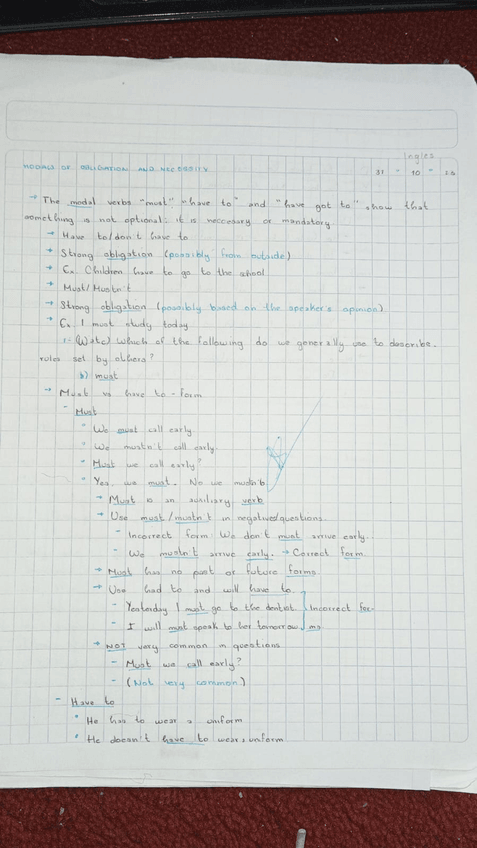 Ingles
MODALS OF OBLIGATION AND NECESSITY
31 - 10 - 20
→ The modal verbs "must" "have to" and "have got to" show that
something is not optional: it is neccesary or mandatory
→ Have to/don't have to
→ Strong obligation (possibly from outside)
→ Ex. Children have to go to the school
→ Must/Mustn't
→ Strong obligation (possibly based on the speaker's opinion)
→ Ex I must study today
1- (Wate) which of the following do we generally use to describe.
rules set by others?
b) must
→ Must vs have to - form
- Must
- We must call early
We mustn't call early.
- Must we call early?
Yes, we must. No we mustn't
→ Must is an auxiliary verb
→ Use must/mustn't in negatives/questions.
- Incorrect form: We don't must arrive early.
- We mustn't arrive early. → Correct form
→ Must has no past or future forms.
→ Use had to and will have to.
- Yesterday I must go to the dentist. Incorrect for-
- I will must speak to her tomorrow. ms
→ NOT very common in questions
- Must we call early?
- (Not very common)
- Have to
• He has to wear a uniform
• He doesn't have to wear a uniform